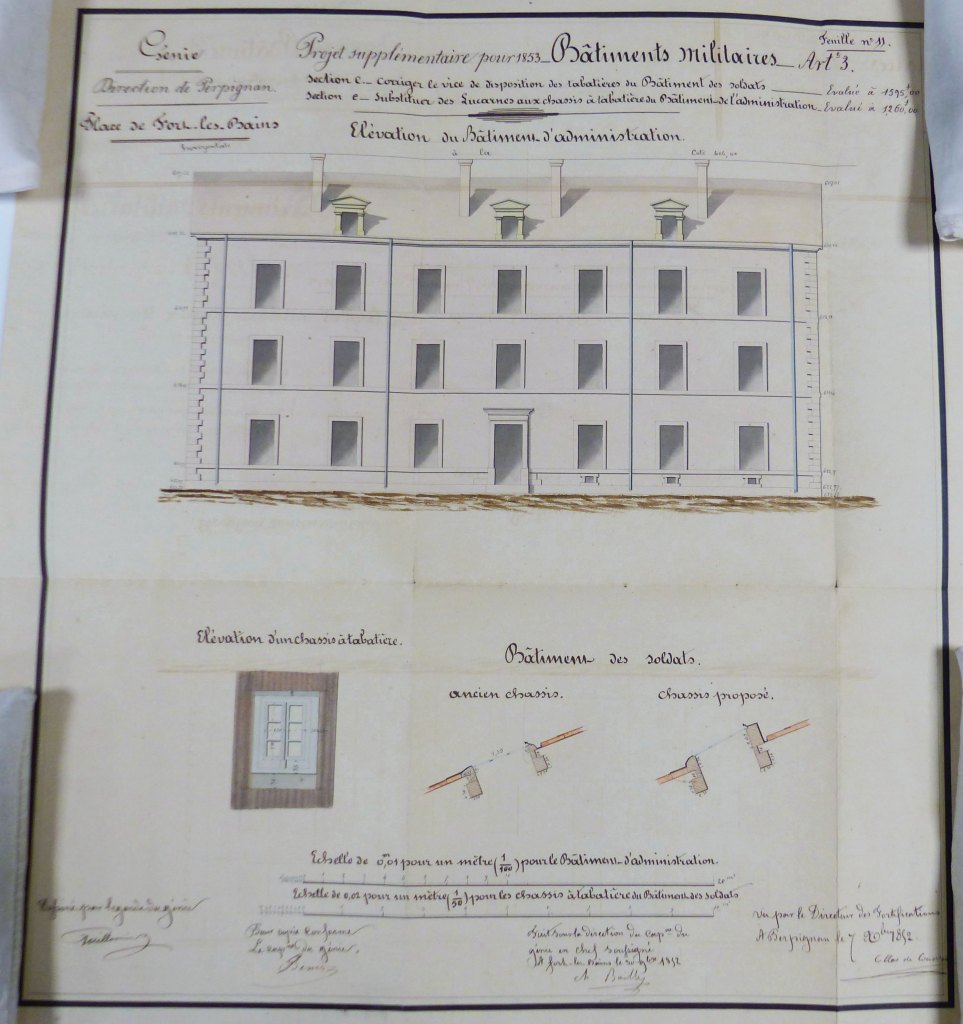 Génie
Direction de Perpignan.
Place de Fort-les-Bains
Projet supplémentaire pour 1853 Bâtiments Militaires Art. 3.
Feuille n° 11.
Section C. corriger le vice de disposition des tabatières du Bâtiment des soldats Evalué à 1595,00
Section e. Substituer des Lucarnes aux chassis à tabatière du Bâtiment de l'administration Evalué à 1260,00
Elévation du Bâtiment d'administration.
Horizontale à la Cote
Elévation d'un chassis à tabatière.
Bâtiment des soldats.
ancien chassis.
chassis proposé.
Echelle de 0,01 pour un mètre (1/100) pour le Bâtiment d'administration.
Echelle de 0,02 pour un mètre (1/50) pour les chassis à tabatière du Bâtiment des soldats
par le garde du génie
Pour copie conforme
Le du génie
Fait sous la direction du
génie en chef soussigné
A Fort-les-Bains le 30 9bre 1852
vu par le Directeur des Fortifications
A Perpignan le 7 Xbre 1852